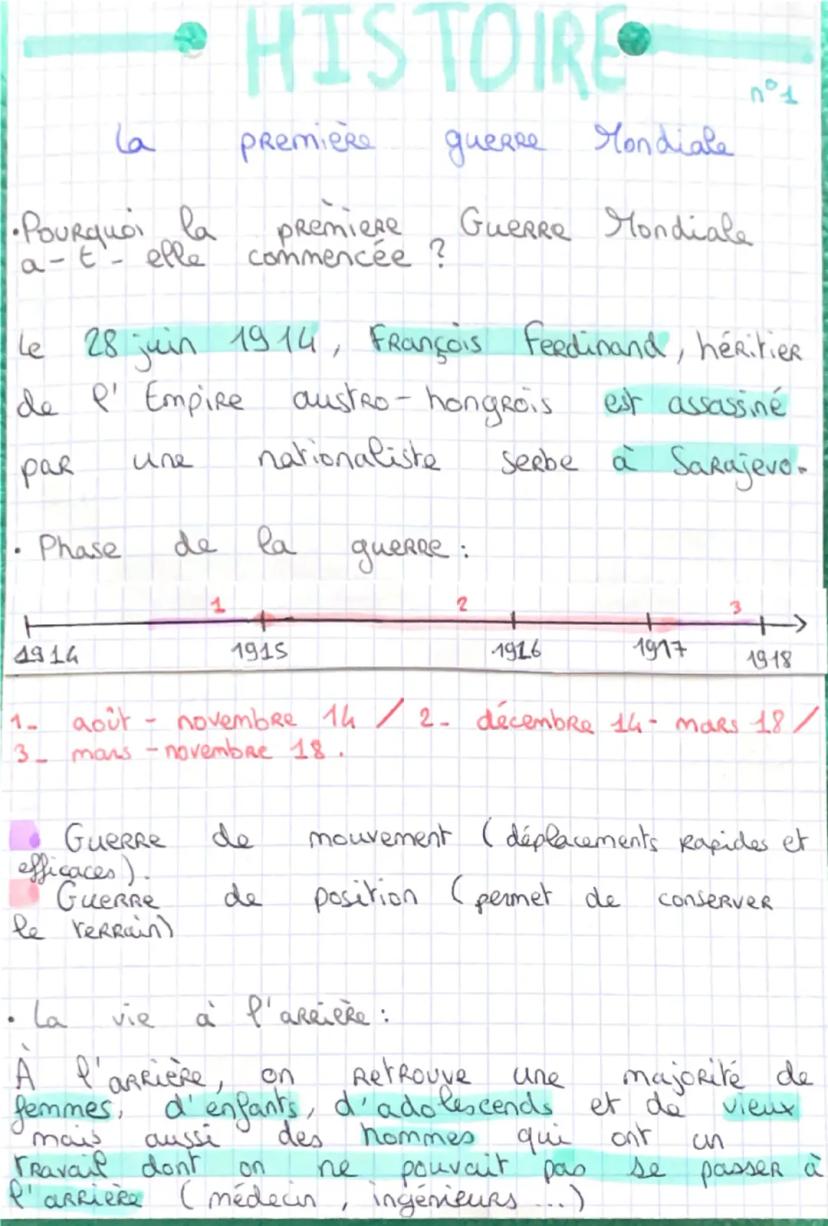 HISTOIRE
n°1
La première guerre Mondiale
• Pourquoi la première Guerre Mondiale
a-t-elle commencée ?
Le 28 juin 1914, François Ferdinand, héritier
de l'Empire austro-hongrois est assassiné
par une nationaliste serbe à Sarajevo.
• Phase de la guerre :
1 2 3
1914 1915 1916 1917 1918
1- août - novembre 14 / 2- décembre 14- mars 18 /
3- mars - novembre 18.
Guerre de mouvement (déplacements rapides et
efficaces).
Guerre de position (permet de conserver
le terrain)
• La vie à l'arrière :
À l'arrière, on retrouve une majorité de
femmes, d'enfants, d'adolescends et de vieux
mais aussi des hommes qui ont un
travail dont on ne pouvait pas se passer à
l'arrière (médecin, ingénieurs ...)